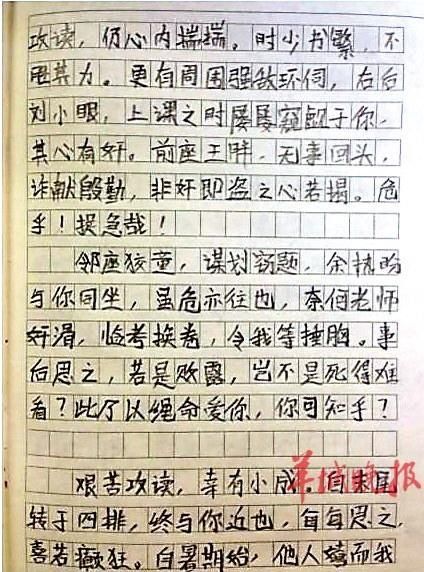 攻读，仍心内揣揣。时少书繁，不
胜其力。更有周围强敌环伺，右后
刘小眼，上课之时屡屡窥觎于你，
其心有奸。前座王胖，无事回头，
诈献殷勤，非奸即盗之心若揭。危
乎！捉急哉！
邻座狡童，谋划窃题，余执吩
与你同坐，虽危亦往也，奈何老师
奸滑，临考换卷，令我等捶胸。事
后思之，若是败露，岂不是死得难
看？此乃以绳命爱你，你可知乎？
艰苦攻读，幸有小成。自末尾
转于四排，终与你近也，每每思之，
喜若癫狂。自暑期始，他人嬉而我
羊城晚报